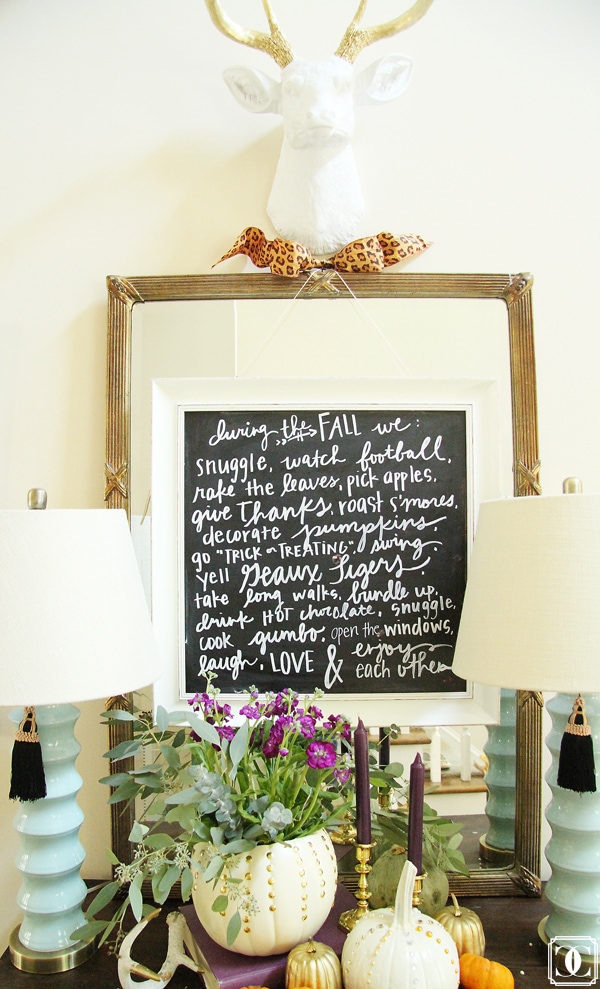 during the FALL we:
snuggle, watch football,
rake the leaves, pick apples,
give Thanks, roast s'mores,
decorate pumpkins,
go "TRICK or TREATING", swing,
yell Geaux Tigers,
take long walks, bundle up,
drink HOT chocolate, snuggle,
cook gumbo, open the windows,
laugh, LOVE & enjoy
each other